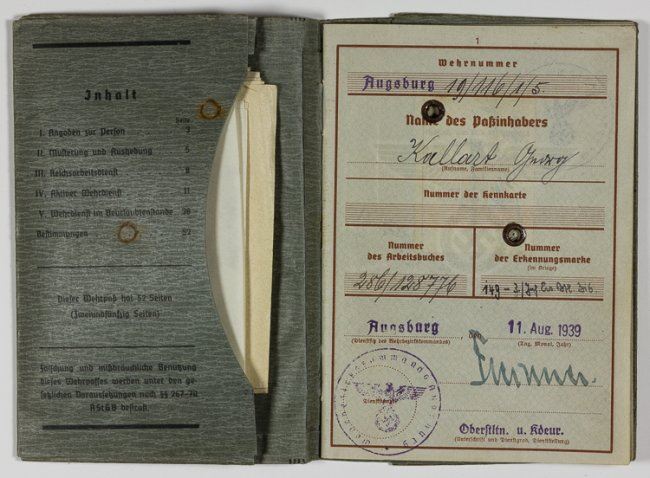 Inhalt
Seite
I. Angaben zur Person 3
II. Musterung und Aushebung 5
III. Reichsarbeitsdienst 8
IV. Aktiver Wehrdienst 11
V. Wehrdienst im Beurlaubtenstande
Bestimmungen 52
Dieser Wehrpaß hat 52 Seiten
(Zweiundfünfzig Seiten)
Fälschung und mißbräuchliche Benutzung
dieses Wehrpasses werden unter den ge-
setzlichen Voraussetzungen nach §§ 267-70
RStGB bestraft.
1
Wehrnummer
Augsburg 19/116/1/5
Name des Paßinhabers
Kallart Georg
(Rufname, Familienname)
Nummer der Kennkarte
Nummer
des Arbeitsbuches
286/128776
Nummer
der Erkennungsmarke
(im Kriege)
149
Augsburg den 11. Aug. 1939
(Dienstsitz des Wehrbezirkskommandos)
(Tag, Monat, Jahr)
(Dienststempel)
Oberstltn. u. Kdeur.
(Unterschrift und Dienstgrad, Dienststellung)
Wehrbezirkskommando Augsburg